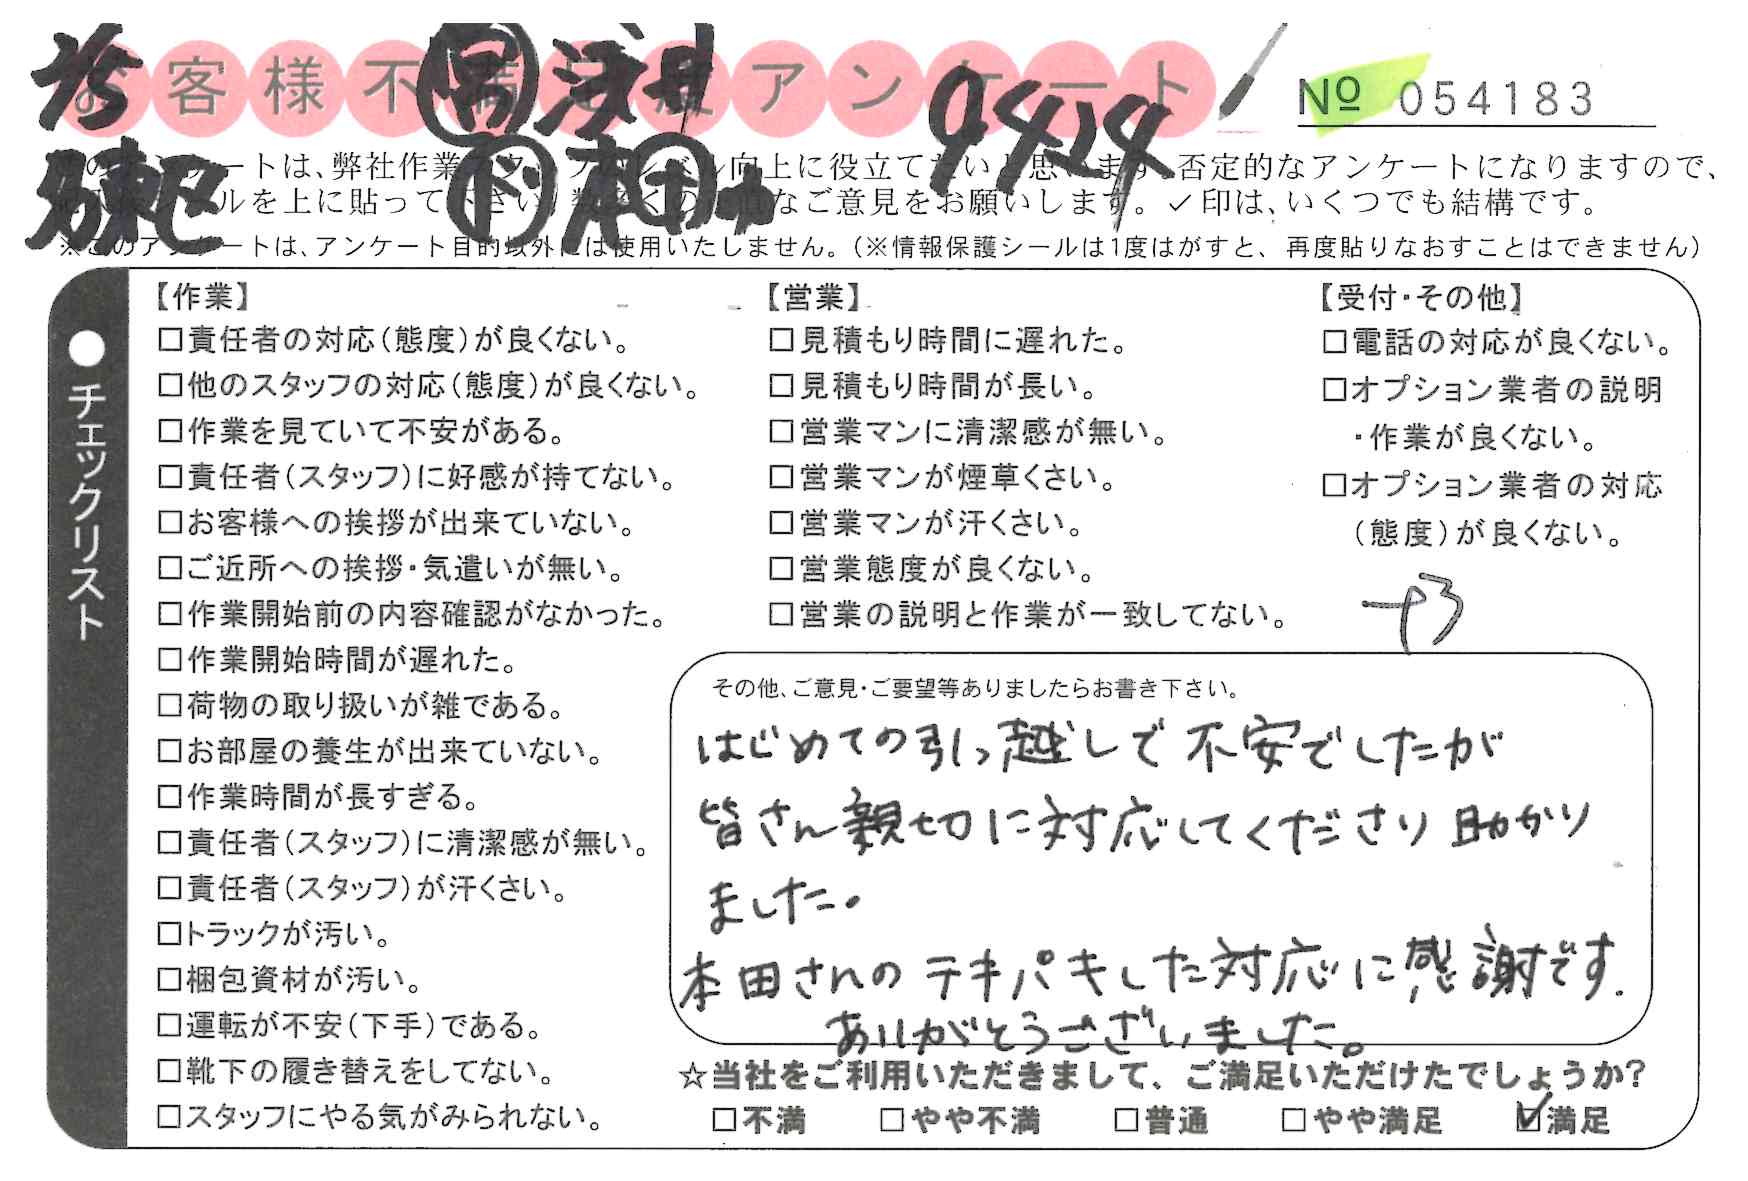 お客様不満足度アンケート
№ 054183
9424
このアンケートは、弊社作業スタッフのレベル向上に役立てたいと思います。否定的なアンケートになりますので、
シールを上に貼って下さい。数多くの なご意見をお願いします。✓印は、いくつでも結構です。
※このアンケートは、アンケート目的以外には使用いたしません。(※情報保護シールは1度はがすと、再度貼りなおすことはできません)
●チェックリスト
【作業】
□責任者の対応(態度)が良くない。
□他のスタッフの対応(態度)が良くない。
□作業を見ていて不安がある。
□責任者(スタッフ)に好感が持てない。
□お客様への挨拶が出来ていない。
□ご近所への挨拶・気遣いが無い。
□作業開始前の内容確認がなかった。
□作業開始時間が遅れた。
□荷物の取り扱いが雑である。
□お部屋の養生が出来ていない。
□作業時間が長すぎる。
□責任者(スタッフ)に清潔感が無い。
□責任者(スタッフ)が汗くさい。
□トラックが汚い。
□梱包資材が汚い。
□運転が不安(下手)である。
□靴下の履き替えをしてない。
□スタッフにやる気がみられない。
【営業】
□見積もり時間に遅れた。
□見積もり時間が長い。
□営業マンに清潔感が無い。
□営業マンが煙草くさい。
□営業マンが汗くさい。
□営業態度が良くない。
□営業の説明と作業が一致してない。
【受付・その他】
□電話の対応が良くない。
□オプション業者の説明
・作業が良くない。
□オプション業者の対応
(態度)が良くない。
+3
その他、ご意見・ご要望等ありましたらお書き下さい。
はじめての引っ越しで不安でしたが
皆さん親切に対応してくださり助かり
ました。
本田さんのテキパキした対応に感謝です.
ありがとうございました。
☆当社をご利用いただきまして、ご満足いただけたでしょうか?
□不満 □やや不満 □普通 □やや満足 ☑満足